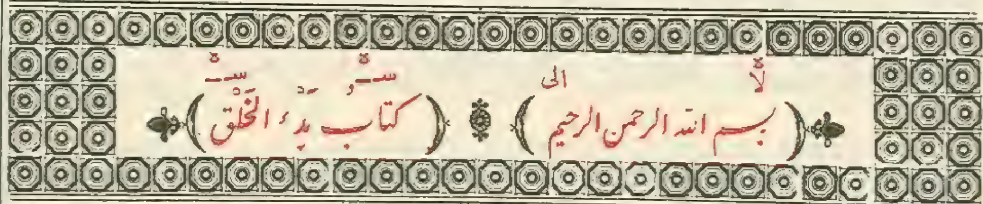 (بسم الله الرحمن الرحيم) (كتاب بَدْءُ الخَلْقِ)